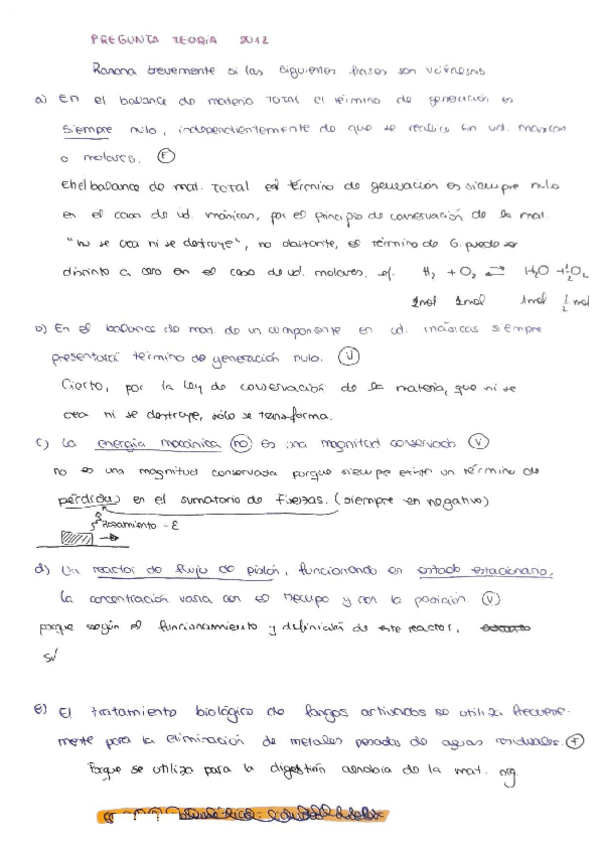 PREGUNTA TEORIA 2012
Razona brevemente si las siguientes frases son verdaderas
a) En el balance de materia TOTAL el término de generación es
siempre nulo, independientemente de que se realice en ud. másicas
o molares. (F)
En el balance de mat. TOTAL el término de generación es siempre nulo
en el caso de ud. másicas, por el principio de conservación de la mat.
"ni se crea ni se destruye", no obstante, el término de G. puede ser
distinto a cero en el caso de ud. molares. ej. H2 + O2 ⇄ H2O + 1/2 O2
1mol 1mol 1mol 1/2 mol
b) En el balance de mat. de un componente en ud. másicas siempre
presentará término de generación nulo. (V)
Cierto, por la ley de conservación de la materia, que ni se
crea ni se destruye, sólo se transforma.
c) La energía mecánica (no) es una magnitud conservada (V)
no es una magnitud conservada porque siempre existe un término de
pérdidas en el sumatorio de fuerzas. (siempre en negativo)
Rozamiento - E
d) Un reactor de flujo de pistón, funcionando en estado estacionario,
la concentración varía con el tiempo y con la posición. (V)
porque según el funcionamiento y definición de este reactor,
sí
e) El tratamiento biológico de fangos activados se utiliza frecuente-
mente para la eliminación de metales pesados de aguas residuales. (F)
Porque se utiliza para la digestión aerobia de la mat. org.